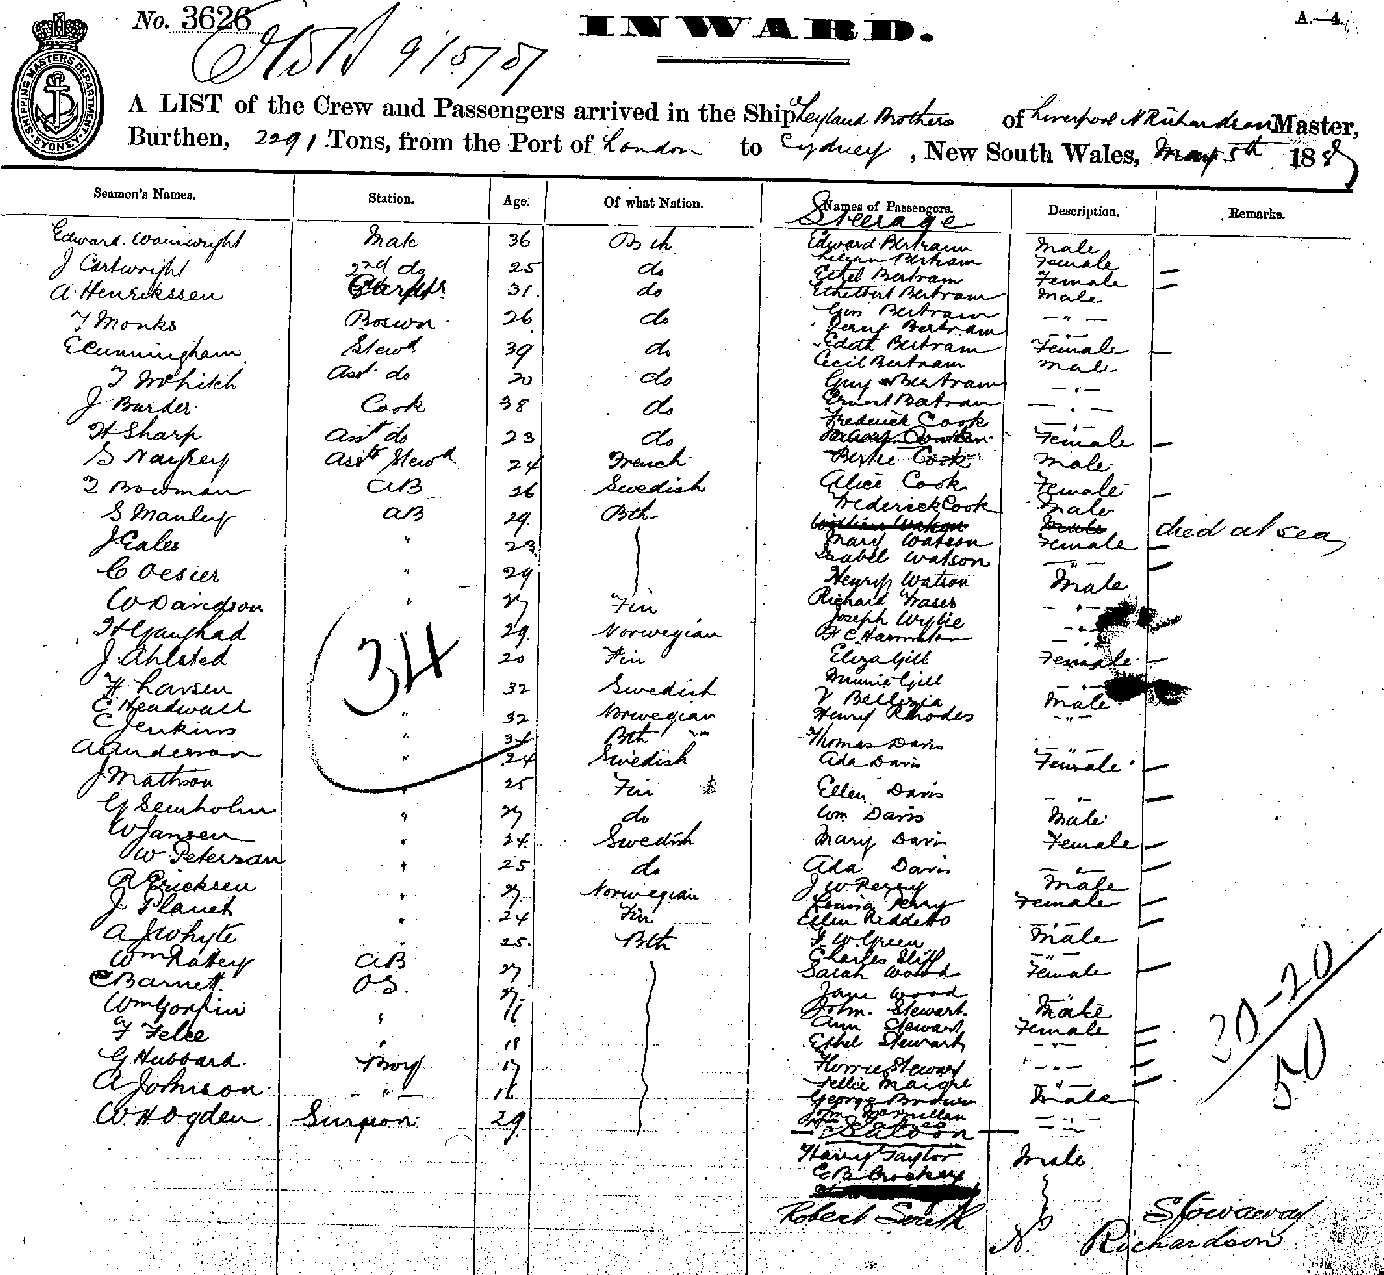 No. 3626
INWARD.
A.—4.
9/5/87
SHIPPING MASTERS DEPARTMENT SYDNEY
A LIST of the Crew and Passengers arrived in the Ship Leyland Brothers of Liverpool N Richardson Master,
Burthen, 2291 Tons, from the Port of London to Sydney, New South Wales, May 5th 188
Seamen's Names. Station. Age. Of what Nation. Names of Passengers. Description. Remarks.
Steerage
Edward Wainwright Mate 36 Btch Edward Bertram Male
J Cartwright 2nd do 25 do Bertram Female
A Henrikssen 31 do Ethel Bertram Female
Ethelbert Bertram Male
T Monks Boswn 26 do Bertram - " -
Percy Bertram
E Cunningham Stewd 39 do Edith Bertram Female
Cecil Bertram Male
T Whitch Asst do 20 do Guy Bertram - " -
J Burder Cook 38 do Ernest Bertram - " -
Frederick Cook
H Sharp Asst do 23 do Female
S Asst Stewd 24 French Bertie Cook Male
T Bowman AB 26 Swedish Alice Cook Female
S Manley AB 29 Bth Frederick Cook Male
died at sea
J Eales " 23 Mary Watson Female
Isabel Watson "
C Oesier " 29 Henry Watson Male
W Davidson " 27 Fin Richard Fraser - " -
Joseph Wylie
H Gaughad " 29 Norwegian
J Ahlsted 20 Fin Eliza Gill Female
H Larsen 32 Swedish Minnie Gill
V Male
E Headwall " 32 Norwegian Henry Rhodes - " -
C Jenkins " 34 Bth Thomas Davis - " -
A Anderson " 24 Swedish Ada Davis Female
J Mattson 25 Fin Ellen Davis - " -
G " 27 do Wm Davis Male
W Jansen " 24 Swedish Mary Davis Female
W Peterson " 25 do Ada Davis - " -
R Ericksen " 27 Norwegian J W Perry Male
J Planet " 24 Fin Louisa Perry Female
Ellen
A J Whyte " 25 Bth J W Green Male
Wm AB 27 Charles - " -
Sarah Wood Female
C Barnett OS 27 Jane Wood
Wm " 16 John Stewart Male
Ann Stewart Female
F Felce " 18 Ethel Stewart - " -
G Hubbard Boy 17 Florrie Stewart - " -
Nellie
A Johnson - " - 16 George Brown Male
John
W H Ogden Surgeon 29 - " -
Saloon
Harry Taylor Male
E B
Robert Smith Stowaway
N. Richardson
34
30-20
50